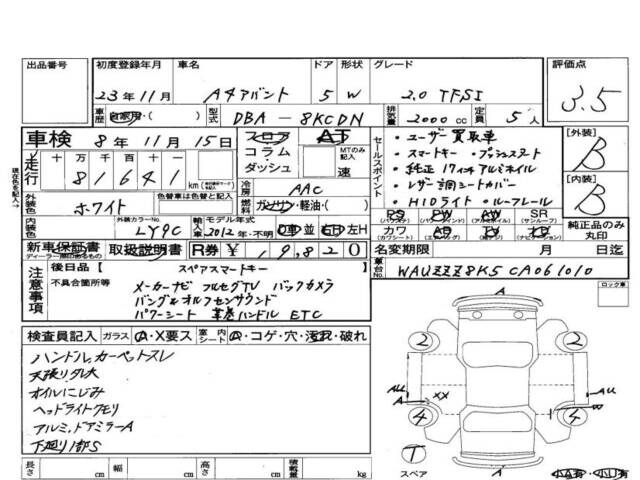 出品番号 初度登録年月 車名 ドア 形状 グレード 評価点
23年11月 A4アバント 5 W 2.0 TFSI 3.5
車歴 自家用・( ) 型式 DBA-8KCDN 排気量 2000 cc 定員 5人
車検 8年 11月 15日 フロア AT
コラム・ダッシュ MTのみ記入 速
走行 十 万 千 百 十 一
81641 km
冷房 AAC
セールスポイント
・ユーザー買取車
・スマートキー・プッシュスタート
・純正17インチアルミホイル
・レザー調シートカバー
・HIDライト・ルーフレール
[外装] B
[内装] B
外装色 ホワイト 色替車は色替と記入
燃料 ガソリン・軽油・( )
PS PW AW SR
(パワステ) (パワーウインド) (アルミホイル) (サンルーフ)
カワ SD TV ナビ
純正品のみ丸印
内装色 外装カラーNo. LY9C 輸入車 モデル年式 2012年・不明 D車 並 右 左H
新車保証書 取扱説明書 R券 ¥19,820 名変期限 月 日迄
ディーラー印のあるもの
車台No. WAUZZZ8K5CA061010
現在色を記入→
注意事項 後日品 [ スペアスマートキー ]
不具合箇所等 メーカーナビ フルセグTV バックカメラ
バング&オルフセンサウンド
パワーシート 革巻ハンドル ETC
ロック車
検査員記入 ガラス A・X要ス 室内シート A・コゲ・穴・汚れ・破れ
ハンドル,カーペットスレ
天張り,ダレ大
オイルにじみ
ヘッドライトクモリ
アルミ,ドアミラーA
下廻り1部S
A
2 2
AU AU
A XX W
4 4
T
スペア
A
小A有・小U有
長さ cm 幅 cm 高さ cm 積載量 kg